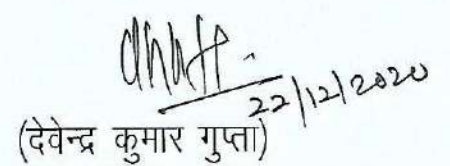 22/12/2020
(देवेन्द्र कुमार गुप्ता)